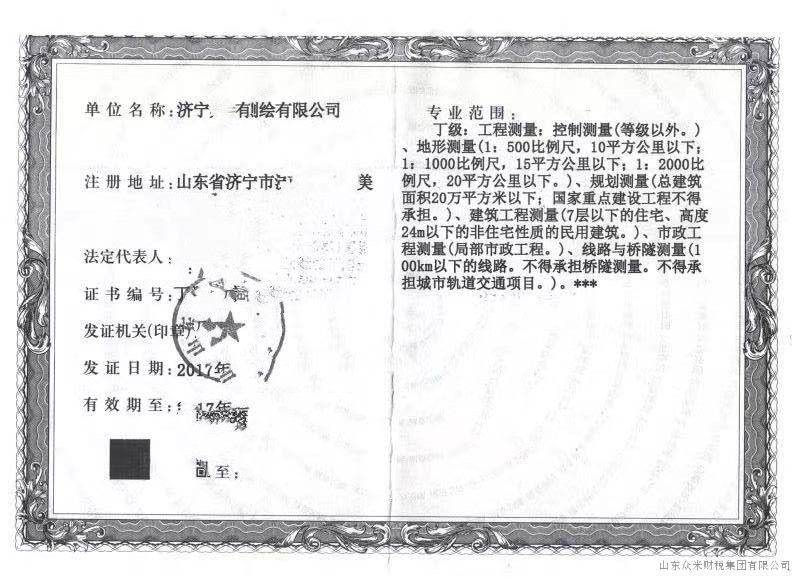 单位名称:济宁 有测绘有限公司
注册地址:山东省济宁市 美
法定代表人:
证书编号:丁
发证机关(印章)
发证日期:2017年
有效期至: 17年
至:
专业范围:
丁级:工程测量:控制测量(等级以外。)
、地形测量(1:500比例尺,10平方公里以下;
1:1000比例尺,15平方公里以下;1:2000比
例尺,20平方公里以下。)、规划测量(总建筑
面积20万平方米以下;国家重点建设工程不得
承担。)、建筑工程测量(7层以下的住宅、高度
24m以下的非住宅性质的民用建筑。)、市政工
程测量(局部市政工程。)、线路与桥隧测量(1
00km以下的线路。不得承担桥隧测量。不得承
担城市轨道交通项目。)。***
山东众米财税集团有限公司